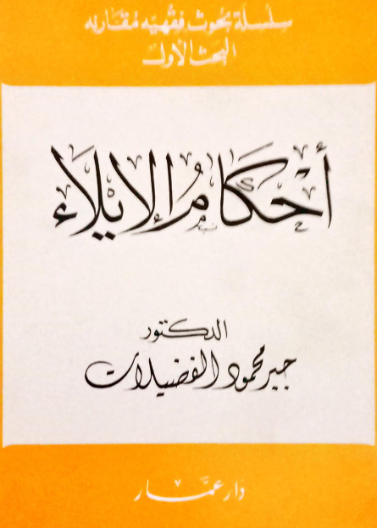 سلسلة بحوث فقهية مقارنه
البحث الأول
أحكام الإيلاء
الدكتور
جبر محمود الفضيلات
دار عمار